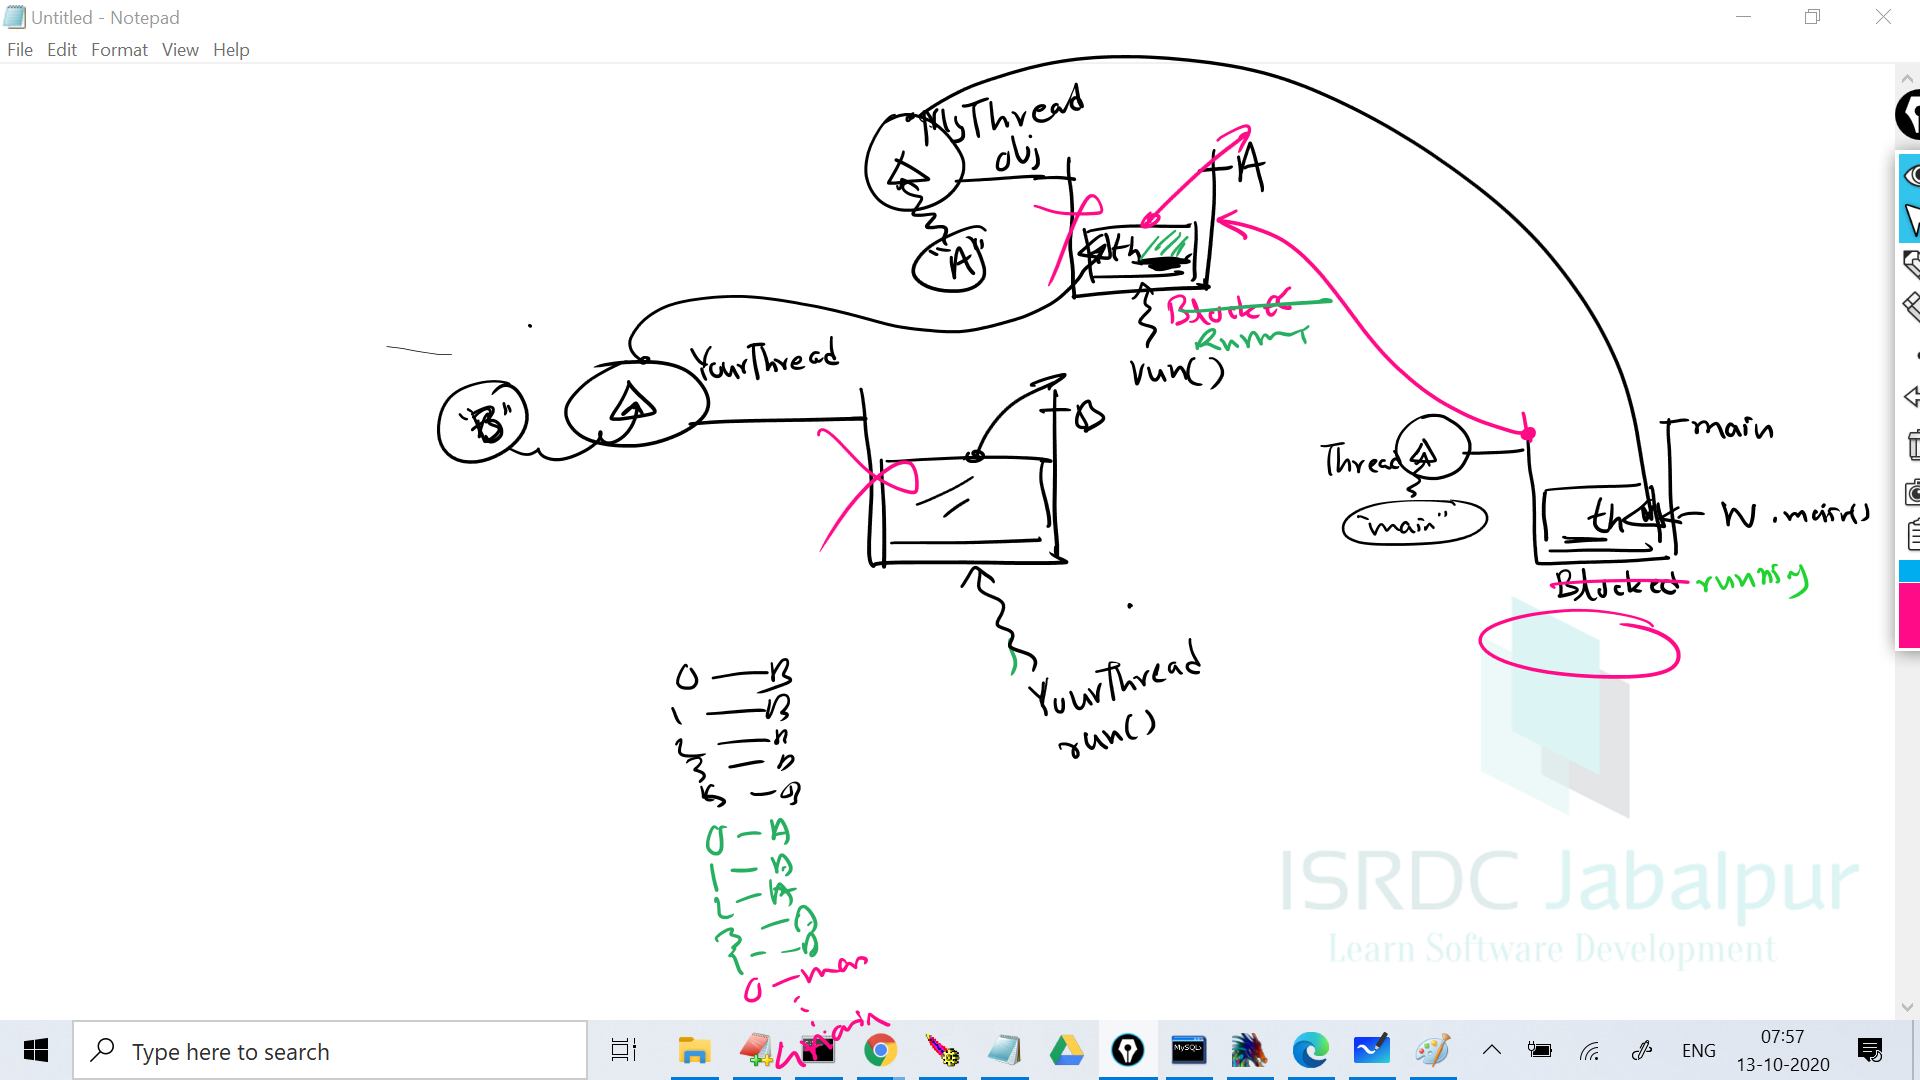 Untitled - Notepad
File Edit Format View Help
MyThread
obj
A
"A"
th
Blocked
run()
YourThread
"B"
B
Thread
main
"main"
th
W.main()
Blocked
YourThread
run()
0 — B
1 — B
2
3
0 — A
1
2 — A
3
0 — main
main
ISRDC Jabalpur
Learn Software Development
Type here to search
MySQL
ENG
07:57
13-10-2020